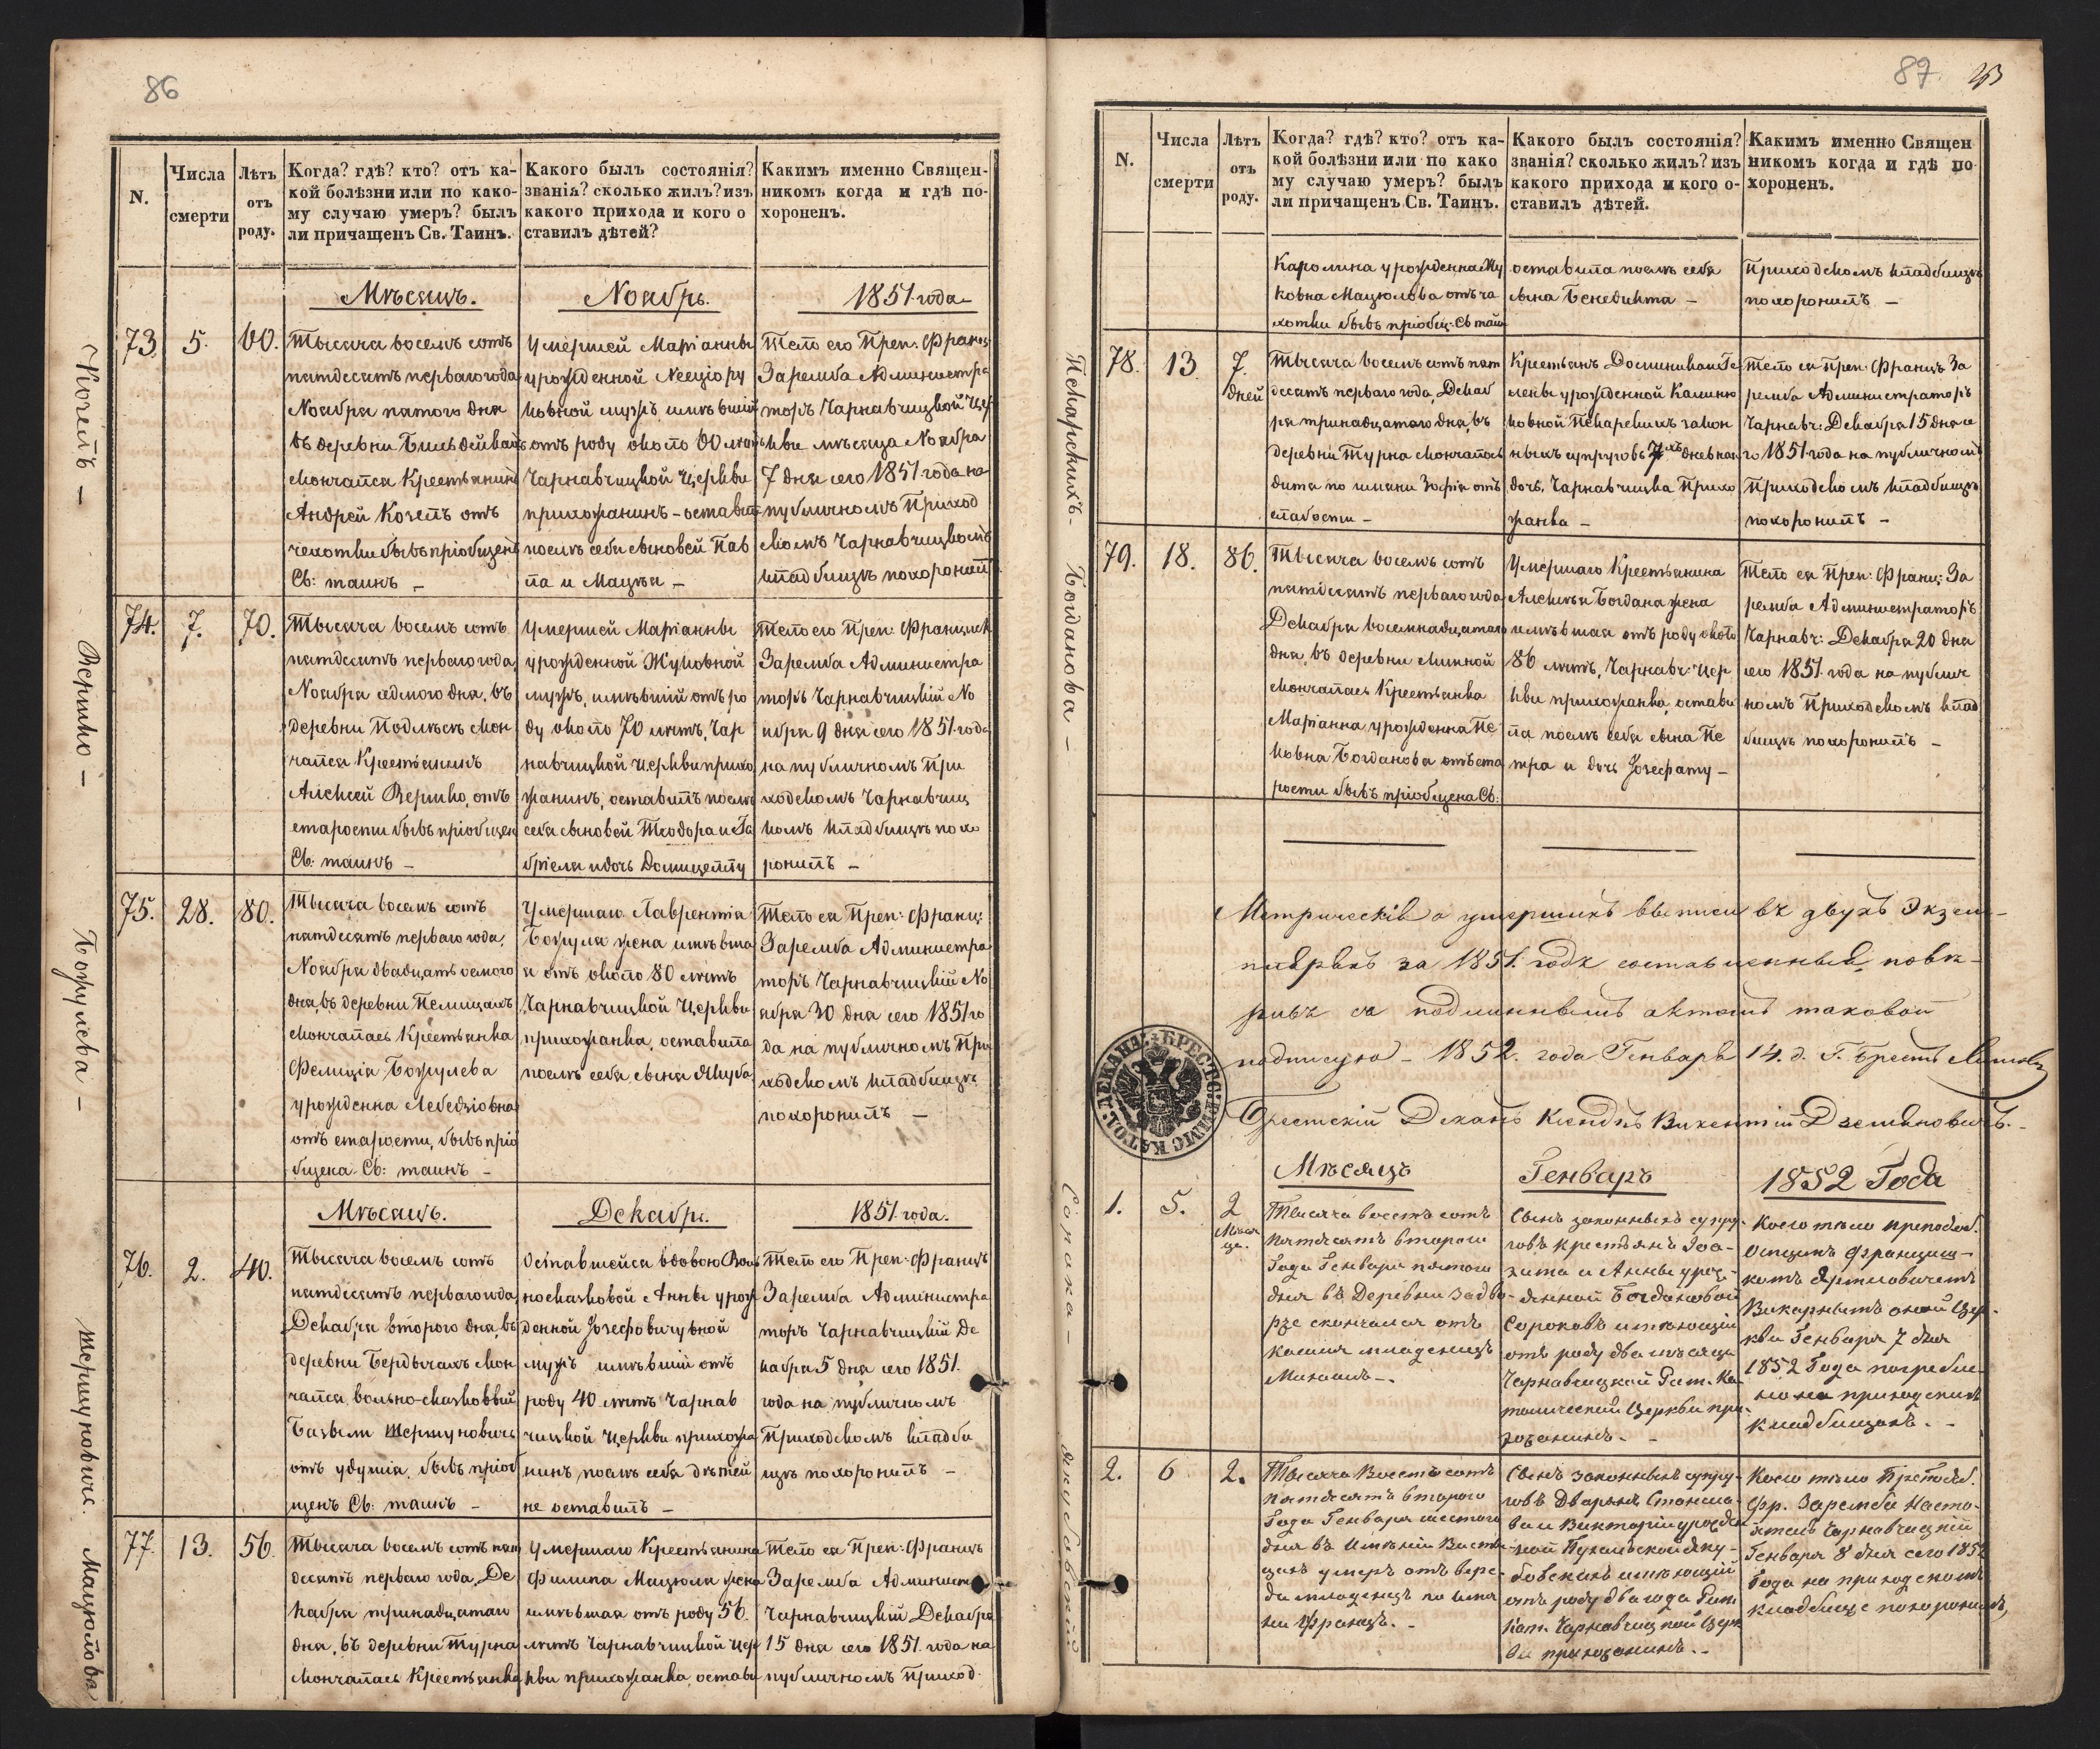 86
N.
Числа смерти
Лѣтъ отъ роду.
Когда? гдѣ? кто? отъ ка-
кой болѣзни или по како-
му случаю умеръ? былъ
ли причащенъ Св. Таинъ.
Какого былъ состоянія?
званія? сколько жилъ? изъ
какого прихода и кого о
ставилъ дѣтей?
Какимъ именно Священ-
никомъ когда и гдѣ по-
хороненъ.
Мѣсяцъ. Ноябрь. 1851 года
Козелъ —
73. 5. 60.
Тысяча восемь сотъ
пятдесятъ перваго года
Ноября пятого дня
въ деревни
скончался Крестьянинъ
Андрей Козелъ отъ
чахотки бывъ пріобщенъ
Св: таинъ —
Умершей Маріанны
урожденной
мужъ имѣвшій
отъ роду около 60 лѣтъ
Чарнавчицкой Церкви
прихожанинъ — оставил
послѣ себя сыновей Пав
ла и Мацѣя —
Тело его Преп: Францъ
Заремба Администра
торъ Чарнавчицкой Цер
кви мѣсяца Ноября
7 дня сего 1851 года на
публичномъ Приход
скомъ Чарнавчицкомъ
кладбищѣ похоронилъ
Вермко —
74. 7. 70.
Тысяча восемь сотъ
пятдесятъ перваго года,
Ноября седмого дня, въ
деревни Подлѣсѣ скон
чался Крестьянинъ
Алексей Вермко, отъ
старости бывъ пріобщен
Св: таинъ —
Умершей Маріанны
урожденной Жуковной
мужъ, имѣвшій отъ ро
ду около 70 лѣтъ, Чар
навчицкой Церкви прихо
жанинъ, оставилъ послѣ
себя сыновей Теодора и Га
бріеля и дочь Домицеллу
Тело его Преп: Францишк
Заремба Администра
торъ Чарнавчицкій Но
ября 9 дня сего 1851 года
на публичномъ При
ходскомъ Чарнавчиц
комъ кладбищѣ похо
ронилъ —
Божулева —
75. 28. 80.
Тысяча восемь сотъ
пятдесятъ перваго года,
Ноября двадцать осмого
дня, въ деревни Пелищахъ
скончалась Крестьянка
Фелиція Божулева
урожденна Лебедзіовна
отъ старости, бывъ пріо
бщена Св: таинъ —
Умершаго Лаврентія
Божуля жена имѣвша
я отъ около 80 лѣтъ
Чарнавчицкой Церкви
прихожанка, оставила
послѣ себя сына Якуба
Тело ея Преп: Франц:
Заремба Администра
торъ Чарнавчицкій Но
ября 30 дня сего 1851 го
да на публичномъ При
ходскомъ кладбищѣ
похоронилъ —
Мѣсяцъ. Декабрь. 1851 года.
Шершуновичъ.
76. 2. 40.
Тысяча восемь сотъ
пятдесятъ перваго года,
Декабря второго дня, въ
деревни Бердычахъ скон
чался вольно-сказковый
Базыли Шершуновичъ
отъ удушія, бывъ пріоб
щенъ Св: таинъ —
Оставшейся вдовою Воль
носказковой Анны урож
денной Іозефовичувной
мужъ имѣвшій отъ
роду 40 лѣтъ Чарнав
чицкой Церкви прихожа
нинъ послѣ себя дѣтей
не оставилъ —
Тело его Преп: Францъ
Заремба Администра
торъ Чарнавчицкій Де
кабря 5 дня сего 1851.
года на публичномъ
Приходскомъ кладби
щѣ похоронилъ —
Мацюлова
77. 13. 56.
Тысяча восемь сотъ пят
десятъ перваго года, Де
кабря тринадцатаго
дня, въ деревни Турна
скончалась Крестьянка
Умершаго Крестьянина
Филипа Мацюля жена
имѣвшая отъ роду 56.
лѣтъ Чарнавчицкой Цер
кви прихожанка, остави
Тело ея Преп: Францъ
Заремба Админист
Чарнавчицкій Декабря
15 дня сего 1851. года на
публичномъ Приход
87
N.
Числа смерти
Лѣтъ отъ роду.
Когда? гдѣ? кто? отъ ка-
кой болѣзни или по како
му случаю умеръ? былъ
ли причащенъ Св. Таинъ.
Какого былъ состоянія?
званія? сколько жилъ? изъ
какого прихода и кого о-
ставилъ дѣтей.
Какимъ именно Священ
никомъ когда и гдѣ по
хороненъ.
Каролина урожденна Жу
ковна Мацюлова отъ ча
хотки бывъ пріобщ: Св таин
оставила послѣ себя
сына Бенедикта —
Приходскомъ кладбищѣ
похоронилъ —
Пекарскихъ —
78. 13. 7. дней
Тысяча восемь сотъ пят
десятъ перваго года, Декаб
ря тринадцатаго дня, въ
деревни Турна скончалось
дитя по имяни Зофія отъ
слабости —
Крестьянъ Доминика и Ге
лены урожденной Калино
ковной Пекарскихъ закон
ныхъ супруговъ 7 дневная
дочь, Чарнавчицка Прихо
жанка —
Тело ея Преп: Францъ За
ремба Администраторъ
Чарнавч: Декабря 15 дня се
го 1851 года на публичномъ
Приходскомъ кладбищѣ
похоронилъ —
Богданова —
79. 18. 86.
Тысяча восемь сотъ
пятдесятъ перваго года
Декабря восемнадцатаго
дня, въ деревни
скончалась Крестьянка
Маріанна урожденна Пе
ковна Богданова отъ ста
рости бывъ пріобщена Св:
Умершаго Крестьянина
Алексѣя Богдана жена
имѣвшая отъ роду около
86 лѣтъ, Чарнавч: Цер
кви прихожанка, остави
ла послѣ себя сына Пе
тра и дочь Іозефату —
Тело ея Преп: Франц: За
ремба Администраторъ
Чарнавч: Декабря 20 дня
сего 1851 года на публич
номъ Приходскомъ клад
бищѣ похоронилъ —
Метрическія о умершихъ выписи въ двухъ Экзем-
плярахъ за 1851. годъ составленныя, повѣ-
ривъ съ подлиннымъ актомъ таковой
подписую — 1852. года Генваря 14. д. Г. Брестъ Литовск
Брестскій Деканъ Ксендзъ Викентій Дземяновичъ. —
Мѣсяцъ Генварь 1852 Года
Сорока —
1. 5. 2 Мѣся ца.
Тысяча восемь сотъ
пятдесятъ второго
Года Генваря пятого
дня въ Деревни Задво-
рце скончался отъ
кашля младенецъ
Михаилъ —.
Сынъ законныхъ супру-
говъ крестьянъ Іоа-
хима и Анны урож-
денной Богдановой
Сороковъ имѣющій
отъ роду два мѣсяца
Чарнавчицкой Рим. Ка-
толической Церкви при-
хожанинъ. —
Коего тѣло преподоб.
Отцемъ Францишк-
комъ Яртмовичемъ
Викарнымъ оной Цер-
кви Генваря 7 дня
1852 Года погребе-
но на приходскихъ
кладбищахъ. —
Якубовскій
2. 6 2.
Тысяча Восемь сотъ
пятдесятъ второго
Года Генваря шестого
дня въ Имѣніи Вистич
цахъ умеръ отъ вере-
да младенецъ по имя
ни Францъ. —
Сынъ законныхъ супру-
говъ Дворянъ Станисла-
ва и Викторіи урожден
ной Яку-
бовскихъ имѣющій
отъ роду два года Рим
Кат. Чарнавчицкой Церк
ви прихожанинъ. —
Коего тѣло Преподоб.
Фр. Заремба Насто-
ятель Чарнавчицкій
Генваря 8 дня сего 1852
Года на приходскомъ
кладбище похоронилъ,